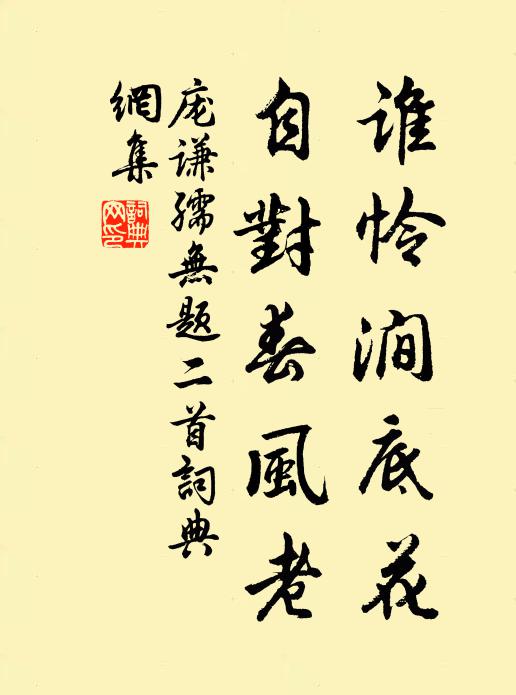 谁怜涧底花
自對春風老
庞谦孺無题二首詞典
網集
詞典
网印